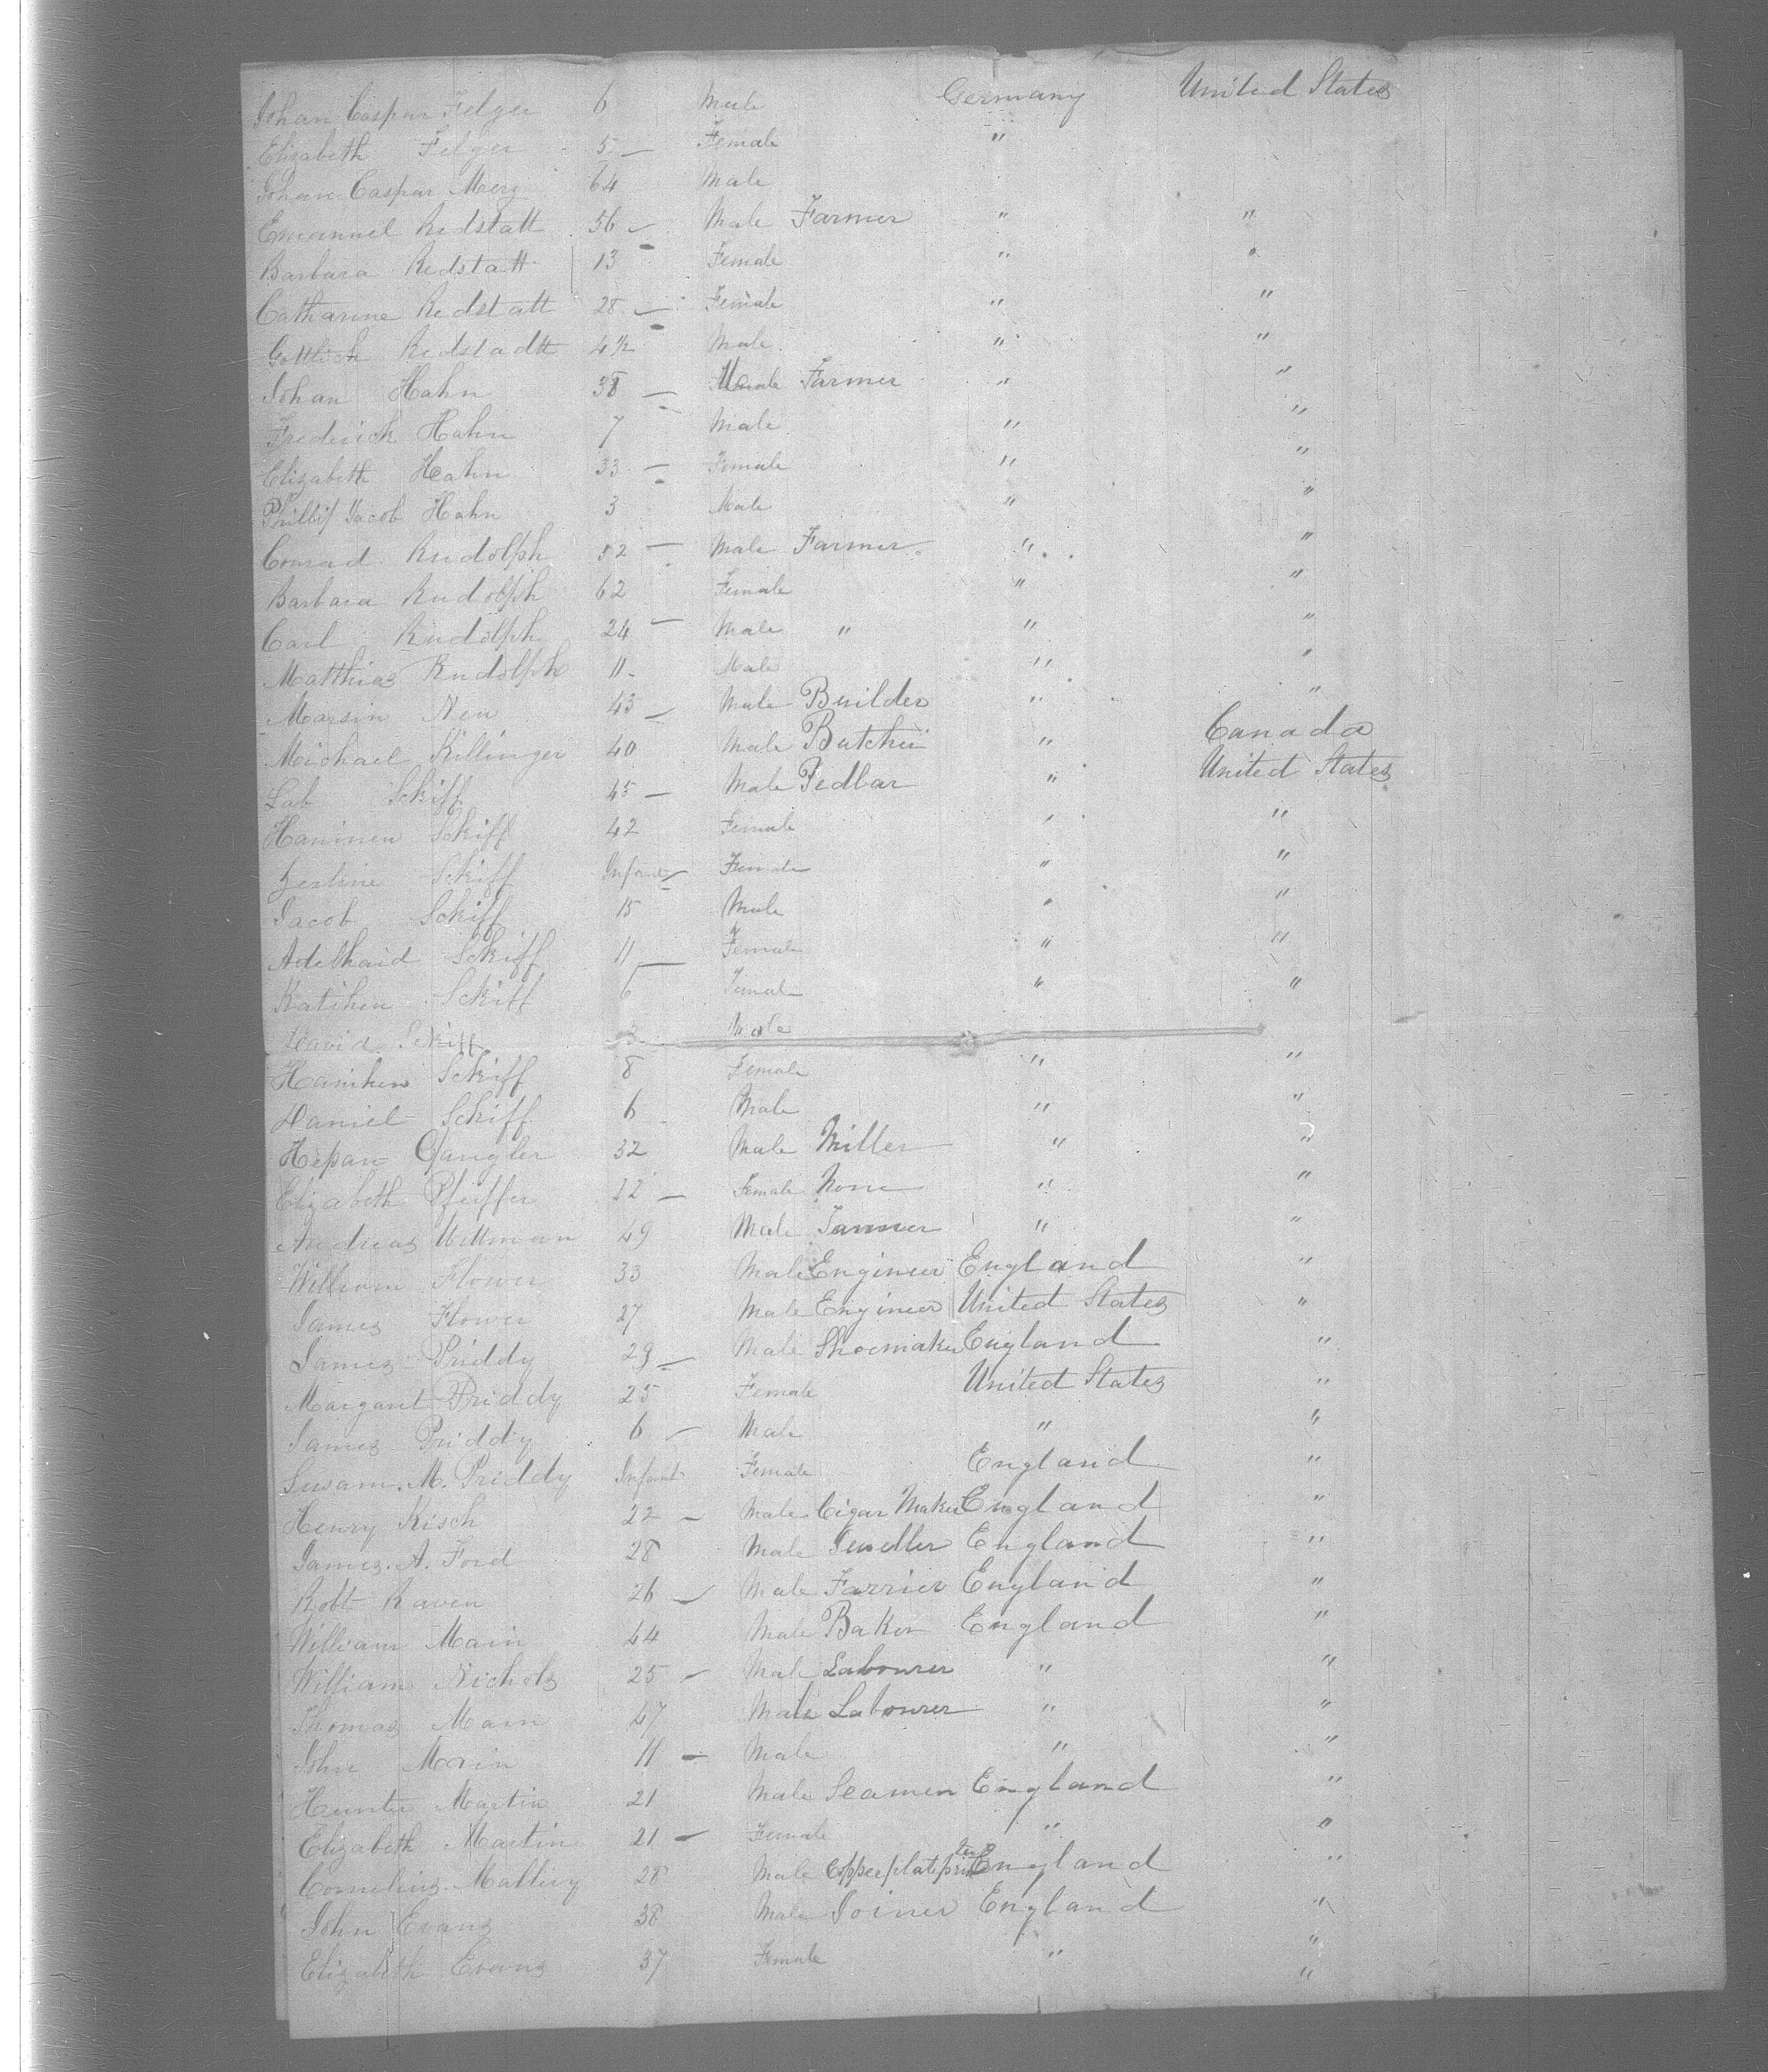 Johan Caspar Felger 6 Male Germany United States
Elizabeth Felger 5 Female "
Johan Caspar Merz 64 Male
Emanuel Redstatt 56 Male Farmer " "
Barbara Redstatt 13 Female " "
Catharine Redstatt 28 Female " "
Gottlieb Redstadtt 4½ Male " "
Johan Hahn 38 Male Farmer " "
Frederick Hahn 7 Male " "
Elizabeth Hahn 33 Female " "
Phillip Jacob Hahn 3 Male " "
Conrad Rudolph 52 Male Farmer " "
Barbara Rudolph 62 Female " "
Carl Rudolph 24 Male " " "
Matthias Rudolph 11 Male " "
Marsin Neu 43 Male Builder " "
Michael Killinger 40 Male Butcher " Canada
Lab Schiff 45 Male Pedlar " United States
Haninen Schiff 42 Female " "
Zerline Schiff Infant Female " "
Jacob Schiff 15 Male " "
Adelhaid Schiff 11 Female " "
Katchen Schiff 6 Female " "
David Schiff 3 Male
Hanchen Schiff 8 Female " "
Daniel Schiff 6 Male " "
Gangler 32 Male Miller " "
Elizabeth Pfeiffer 22 Female None " "
Andreas 49 Male Tanner " "
William Flower 33 Male Engineer England "
James Flower 27 Male Engineer United States "
James Priddy 29 Male Shoemaker England "
Margaret Priddy 25 Female United States "
James Priddy 6 Male " "
Susan. M. Priddy Infant Female England "
Henry Kisch 22 Male Cigar Maker England "
James. A. Ford 28 Male Jeweller England "
Robt Raven 26 Male Farrier England "
William Main 44 Male Baker England "
William Nichols 25 Male Labourer " "
Thomas Main 47 Male Labourer " "
John Main 11 Male " "
Hunter Martin 21 Male Seamen England "
Elizabeth Martin 21 Female " "
Cornelius Mallery 28 Male Copperplateprinter England "
John Evans 38 Male Joiner England "
Elizabeth Evans 37 Female " "
"